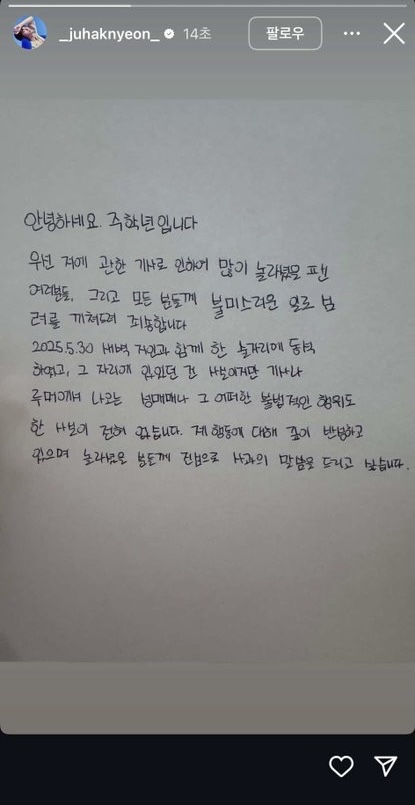 _juhaknyeon_ 14초 팔로우
안녕하세요. 주학년입니다
우선 저에 관한 기사로 인하여 많이 놀라셨을 팬
여러분들, 그리고 모든 분들께 불미스러운 일로 심
려를 끼쳐드려 죄송합니다
2025.5.30 새벽 지인과 함께 한 술자리에 동석
하였고, 그 자리에 있었던 건 사실이지만 기사나
루머에서 나오는 성매매나 그 어떠한 불법적인 행위도
한 사실이 전혀 없습니다. 제 행동에 대해 깊이 반성하고
있으며 놀라셨을 분들께 진심으로 사과의 말씀을 드리고 싶습니다.